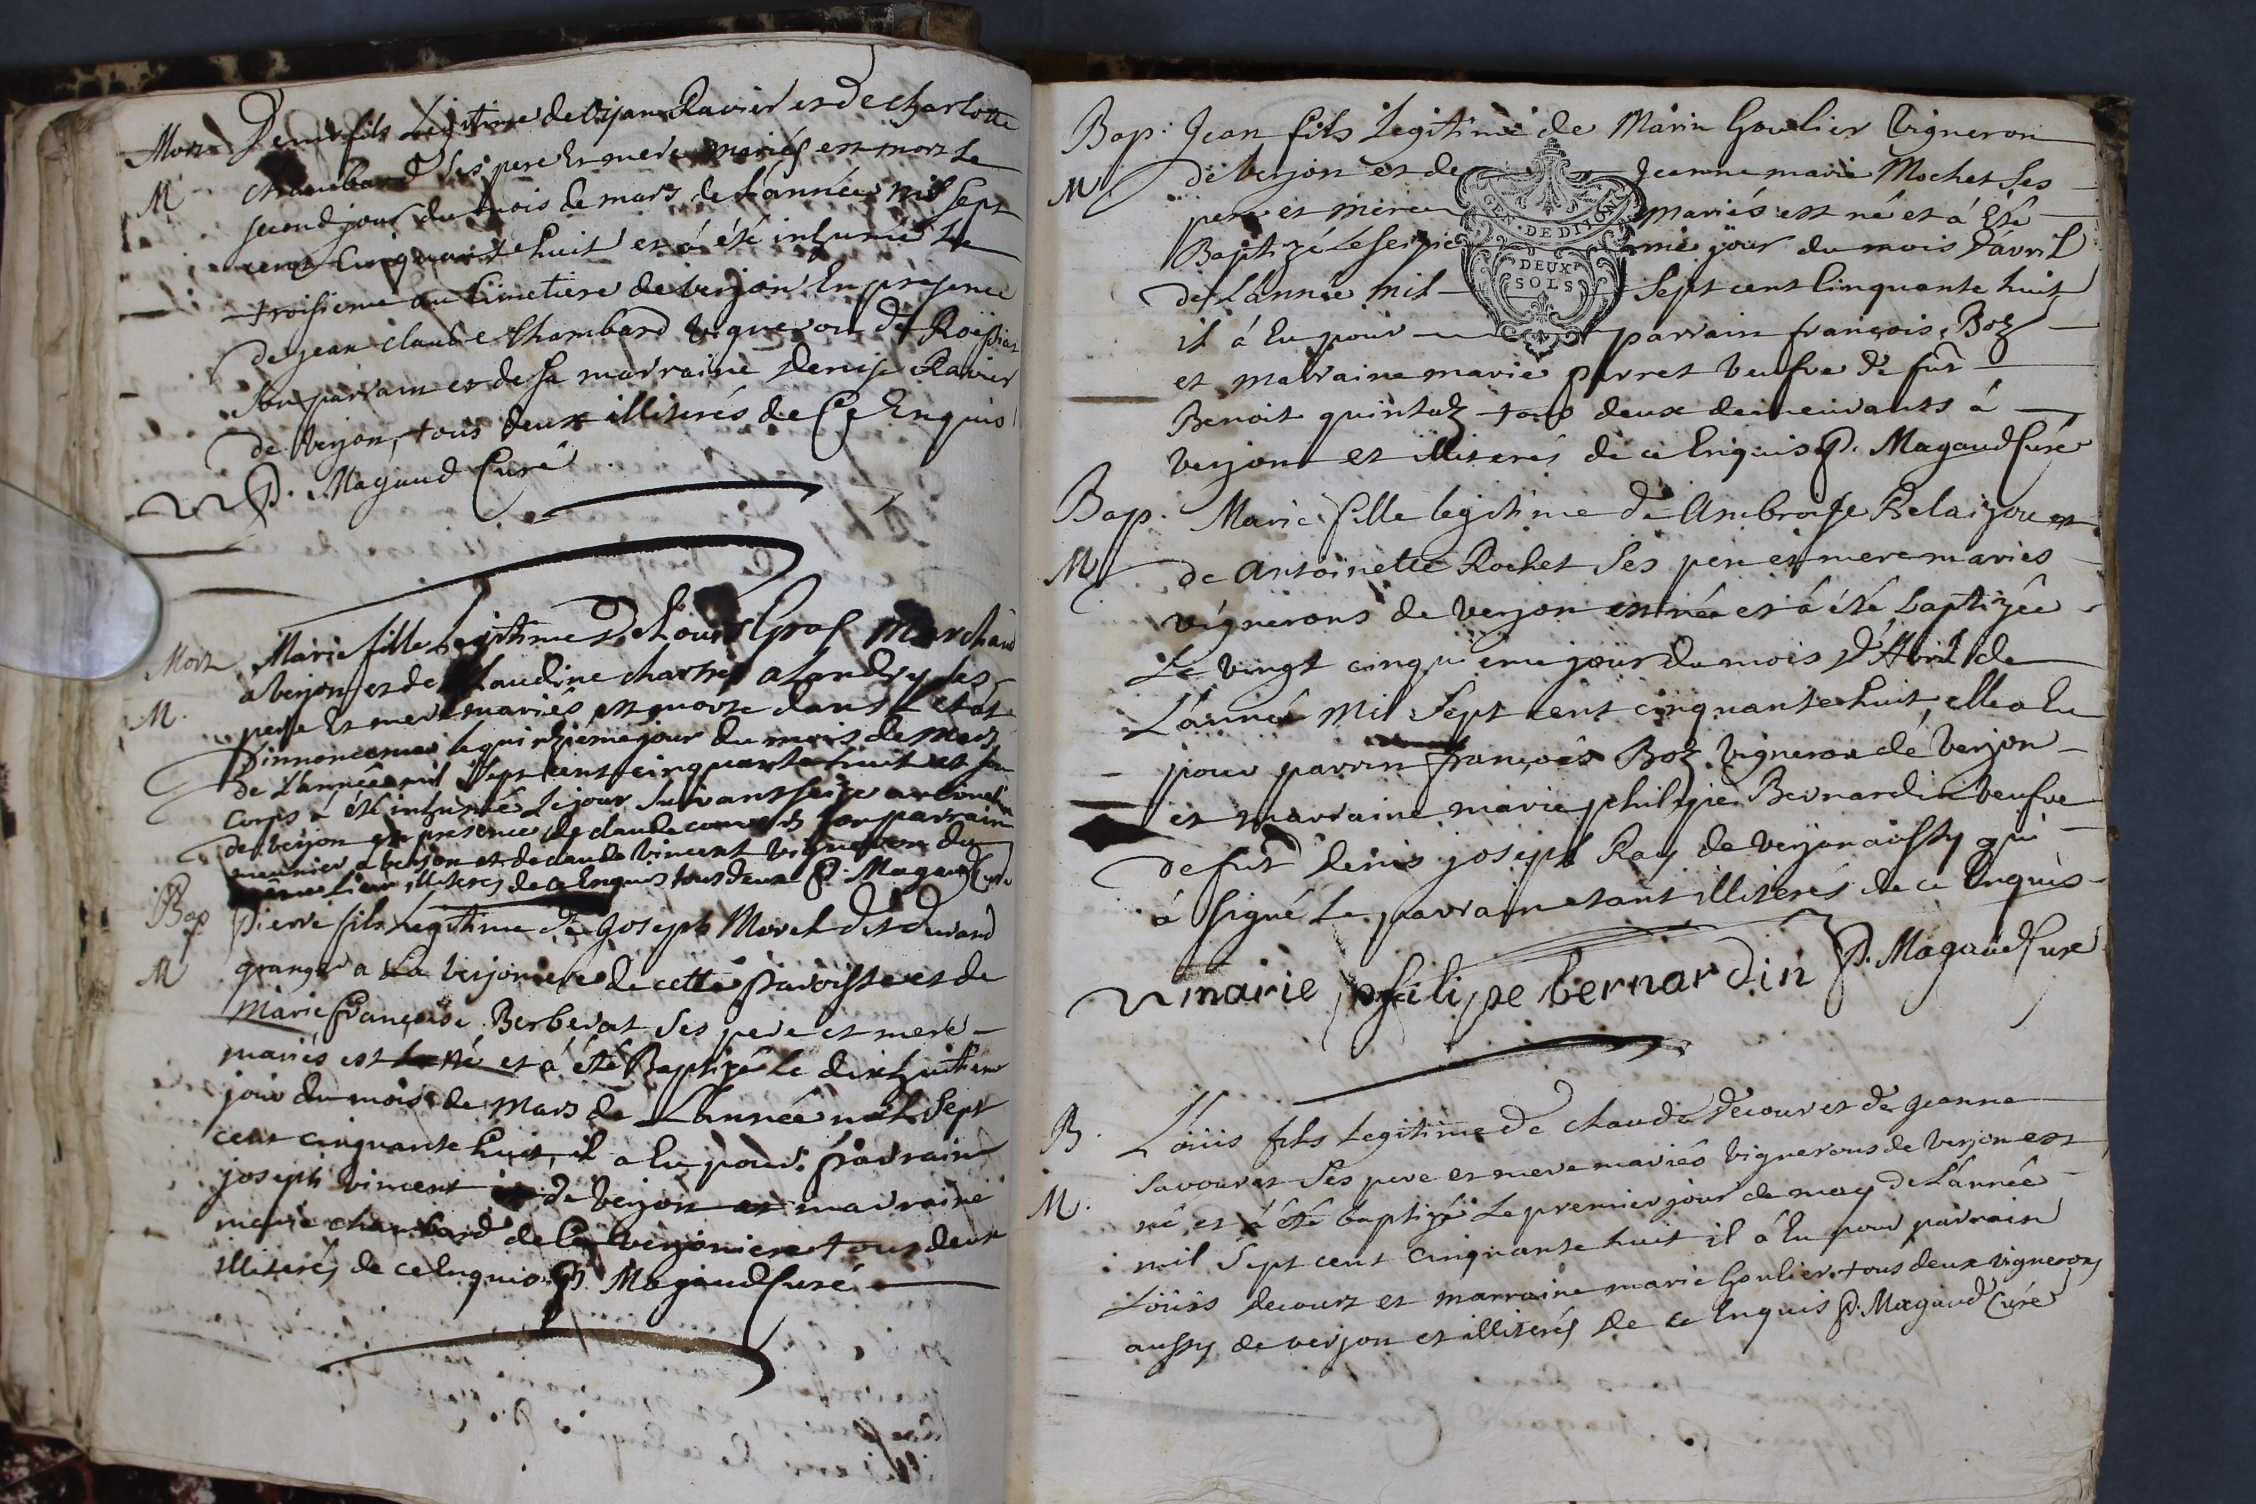 Mort
M
Denis fils Legitime de Dijan Ravier et de Charlotte
Chambard Ses pere Et mere mariés est mort Le
second jour du mois de mars de L'année mil Sept
cent Cinquante huit et á été inhumé Le
troisieme au Cimetiere de verjon En presence
de jean claude Chambard vigneron de Roissiat
Son parrain et de Sa marraine denise Ravier
de Verjon, tous deux illiterés de Ce Enquis
P. Magaud Curé
Mort
M.
Marie fille Legitime de Louis Gros Marchand
a verjon et de Claudine charthe a Landry Ses
pere Et mere mariés est morte dans L'etat
D'innoncence le quinzieme jour du mois de Mars
de L'année mil Sept cent cinquante huit et Son
Corps á été inhumé Le jour Suivant seize au Cimetiere
de verjon en presence de claude Son parrain
meunier a verjon et de claude vincent vigneron du
meme lieu illiterés de ce Enquis tous deux P. Magaud Curé
Bap
M
Pierre fils Legitime de Joseph Morel dit durand
granger a La verjoniere de cette Paroisse et de
Marie françoise Berberat Ses pere et mere
mariés est né et á été Baptizé Le dixhuitieme
jour du mois de Mars de L'année mil Sept
cent cinquante huit, il a Eu pour Parrain
joseph vincent de verjon et marraine
marie chambard de La verjoniere tous deux
illiterés de ce Enquis P. Magaud Curé
Bap:
M
Jean fils Legitime de Marin Goulier Vigneron
de verjon et de Jeanne marie Mochet Ses
pere et mere mariés est né et á Eté
Baptizé Le seizieme jour du mois d'avril
de L'année mil Sept cent Cinquante huit
GEN. DE DIJON
DEUX
SOLS
il á Eu pour parrain françois Boz
et marraine marie perret veufve de fût
Benoit quintal tous deux demeurants á
verjon et illiterés de ce Enquis P. Magaud Curé
Bap.
M
Marie fille legitime de Ambroise Belaizou et
de Antoinette Rochet Ses pere et mere mariés
vignerons de verjon est née et á été baptizée
Le vingt cinquieme jour du mois d'Avril de
L'année mil Sept cent cinquante huit, elle a Eu
pour parrin françois Boz vigneron dé verjon
et marraine marie philipe Bernardin veufve
de fut denis joseph Ray de verjon aussy qui
á signé Le parrain etant illiterés de ce Enquis
P. Magaud Curé
marie philipe bernardin
B.
M.
Loüis fils Legitime de claude decour et de Jeanne
Savouret Ses pere et mere mariés vignerons de verjon est
né et á été baptizé Le premier jour de may de L'année
mil Sept cent cinquante huit il á Eu pour parrain
Loüis decourt et marraine marie Goulier tous deux vignerons
aussy de verjon et illiterés de ce Enquis P. Magaud Curé